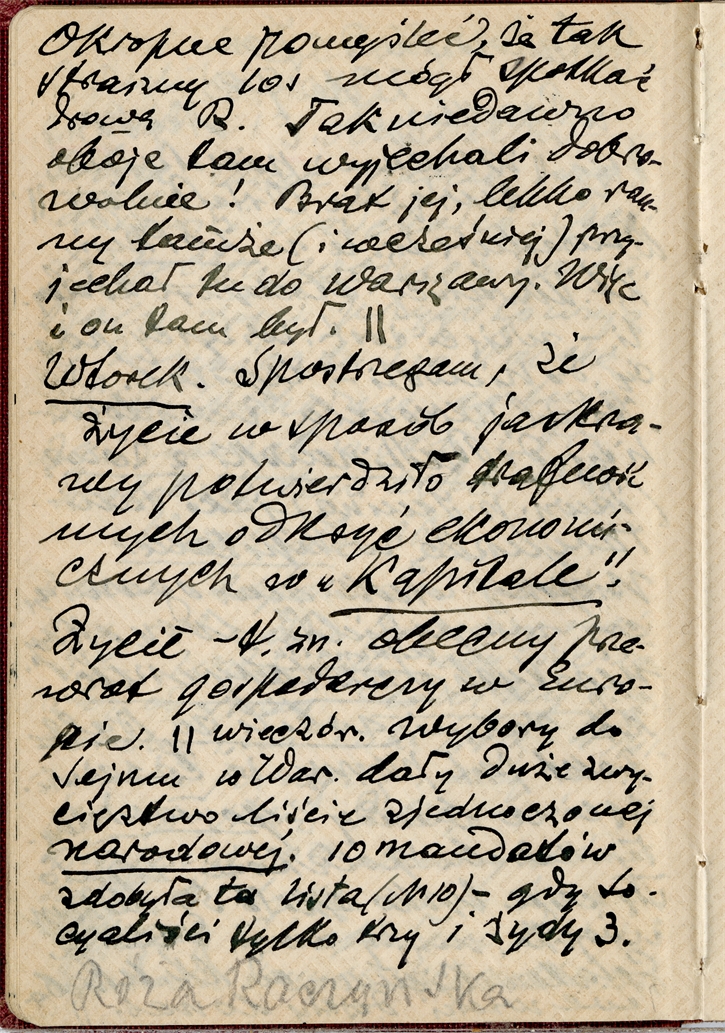 Okropne pomyśleć, że tak
straszny los mógł spotkać
drową R. Tak niedawno
oboje tam wyjechali dobro-
wolnie! Brat jej, lekko ran-
ny tamże (i wcześniej) przy-
jechał tu do Warszawy. Więc
i on tam był. ||
Wtorek. Spostrzegam, że
życie w sposób jaskra-
wy potwierdziło trafność
mych odkryć ekonomi-
cznych w „Kapitale"!
Życie – t. zn. obecny prze-
wrot gospodarczy w Euro-
pie. || wieczór. Wybory do
Sejmu w War. dały duże zwy-
cięstwo liście zjednoczonej
narodowej. 10 mandatów
zdobyła ta lista (№10) – gdy so-
cyaliści tylko trzy i żydy 3.
Róża Raczyńska